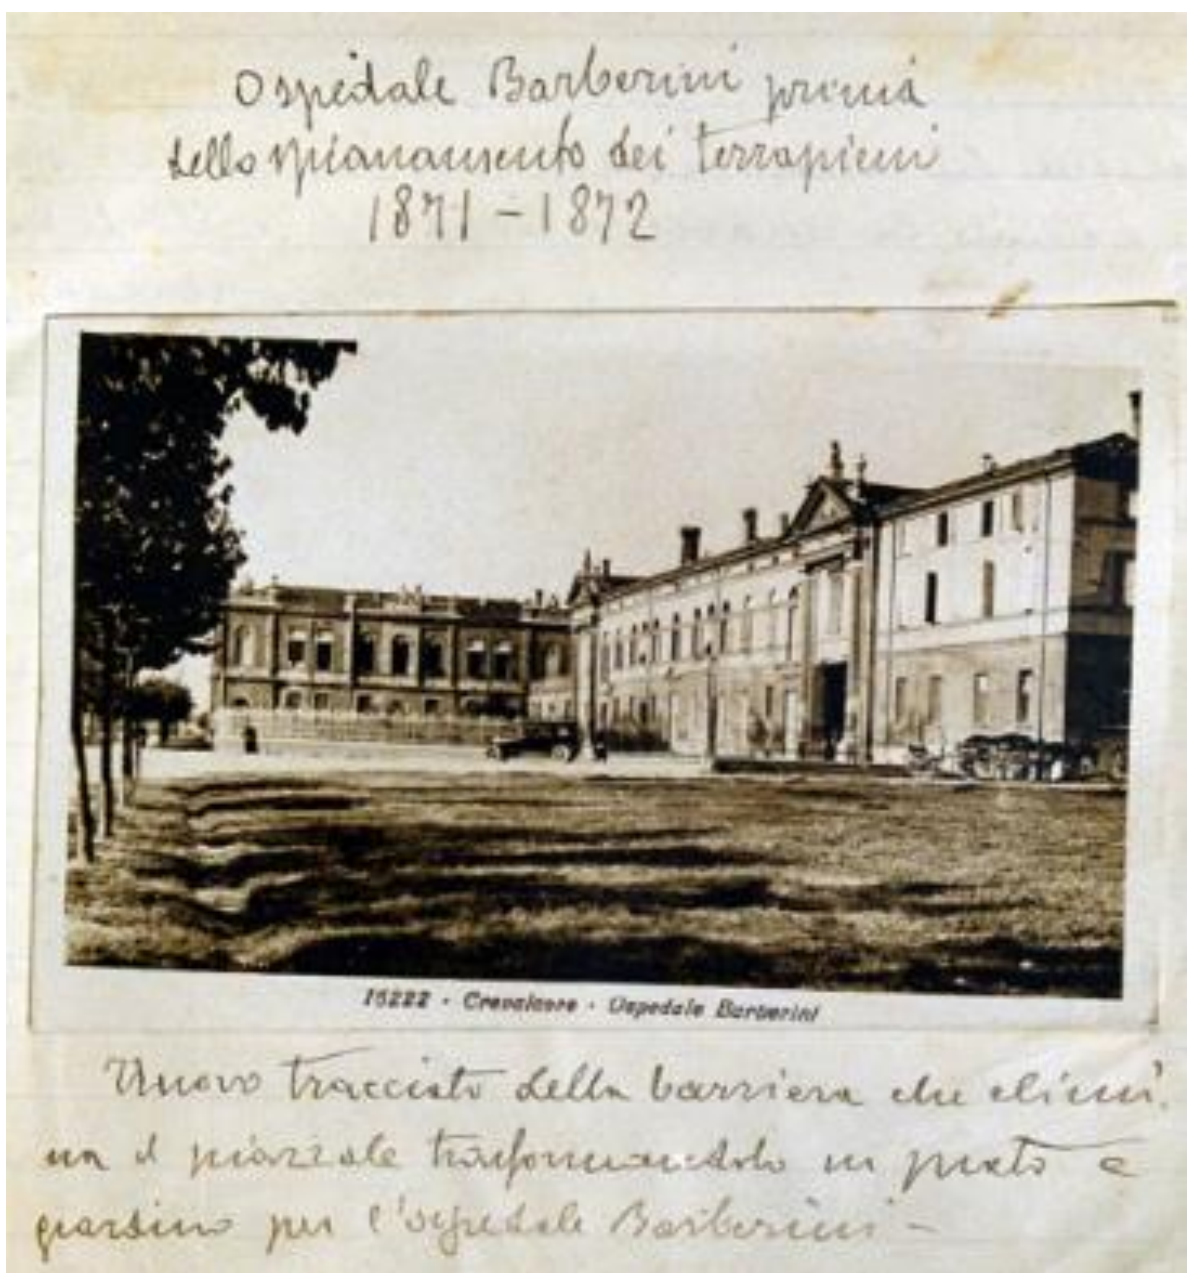 Ospedale Barberini prima
dello spianamento dei terrapieni
1871 - 1872
15222 - Crevalcore - Ospedale Barberini
Nuovo tracciato della barriera che elimi-
na il piazzale trasformandolo in prato e
giardino per l'ospedale Barberini -